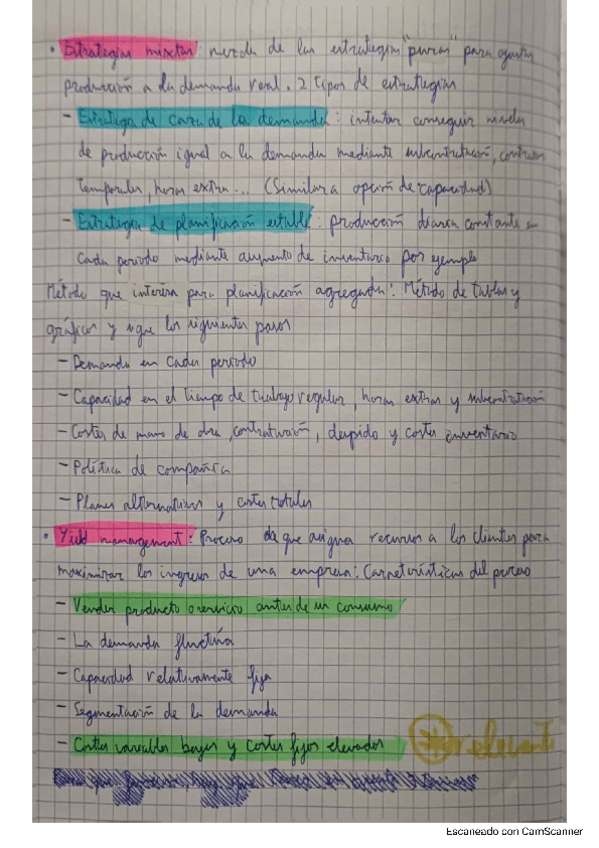 • Estrategias mixtas: mezcla de las estrategias "puras" para ajustar
producción a la demanda real. 2 tipos de estrategias
- Estrategia de caza de la demanda: intentar conseguir niveles
de producción igual a la demanda mediante subcontratación, contratos
temporales, horas extra... (Similar a opción de capacidad)
- Estrategia de planificación estable: producción diaria constante en
cada periodo mediante aumento de inventario por ejemplo
Método que interesa para planificación agregada: Método de tablas y
gráficos y sigue los siguientes pasos
- Demanda en cada periodo
- Capacidad en el tiempo de trabajo regular, horas extras y subcontratación
- Costes de mano de obra, contratación, despido y costes inventario
- Política de compañía
- Planes alternativos y costes totales
• Yield management: Proceso que asigna recursos a los clientes para
maximizar los ingresos de una empresa: Características del proceso
- Vender producto o servicio antes de un consumo
- La demanda fluctúa
- Capacidad relativamente fija
- Segmentación de la demanda
- Costes variables bajos y costes fijos elevados
relevante
Escaneado con CamScanner